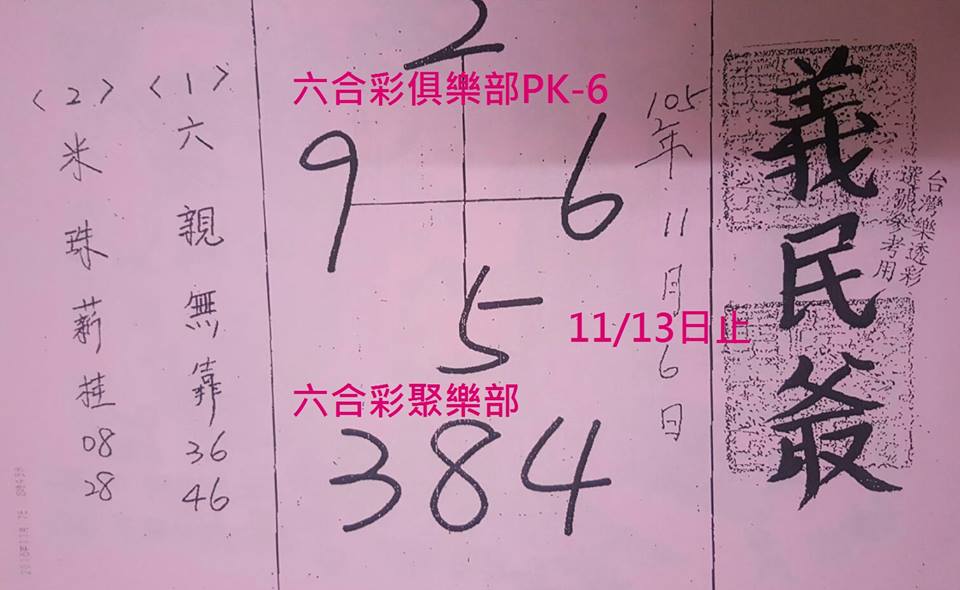 義民爺
台灣樂透彩
選號參考用
105年11月6日
2
六合彩俱樂部PK-6
9 6
5
11/13日止
六合彩聚樂部
384
<1>六親無靠 36 46
<2>米珠薪桂 08 28